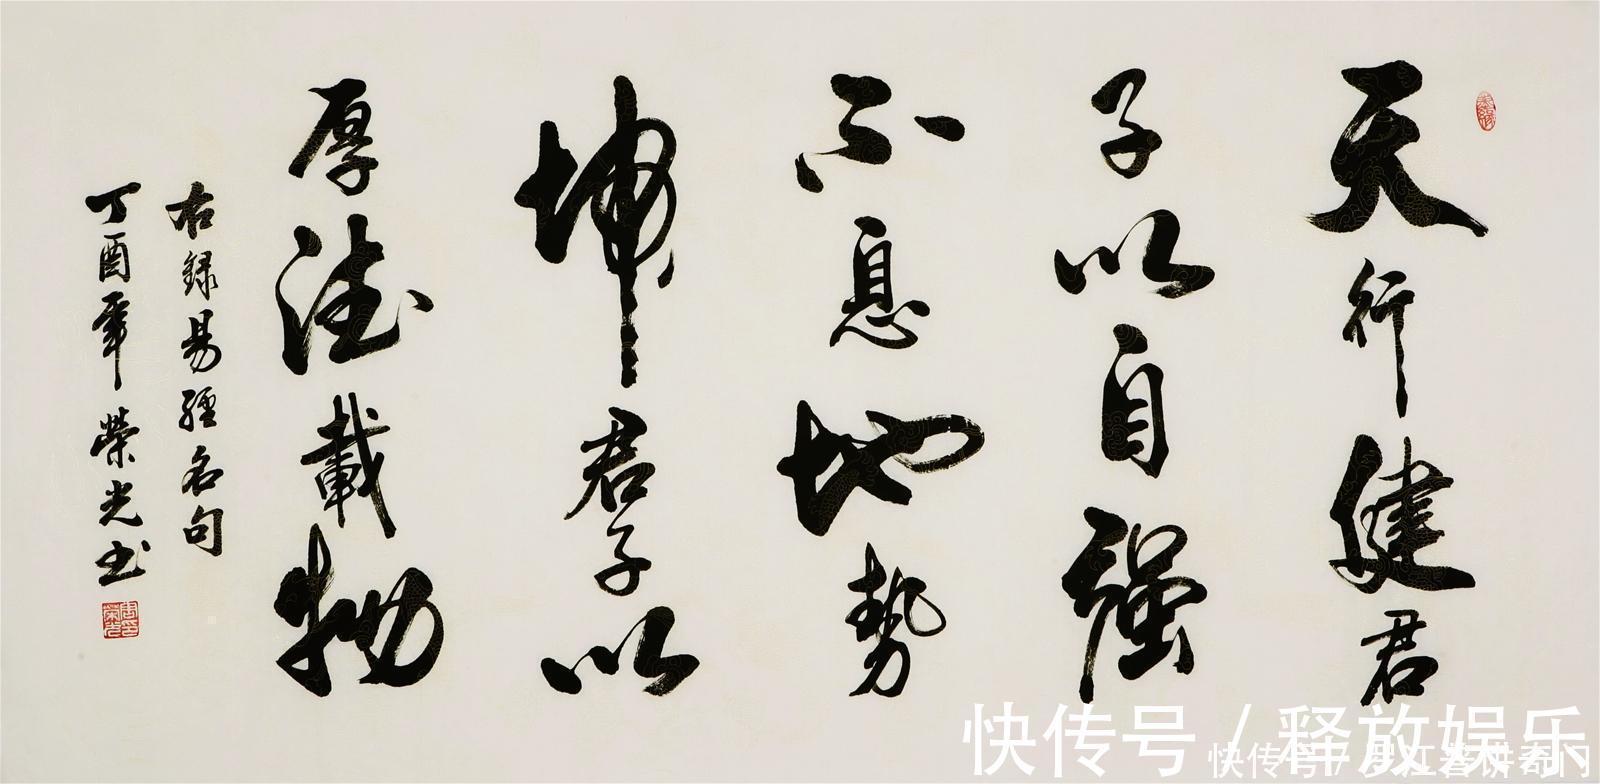 天行健君
子以自强
不息地势
坤君子以
厚德载物
右録易經名句
丁酉年榮光书
快传号/释放娱乐
快传号/